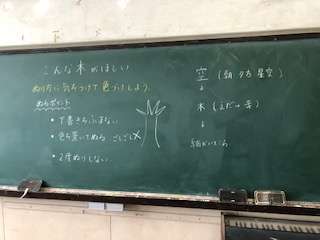 こんな木がほしい
ぬり方に気をつけて色づけしよう。
ぬるポイント
• 下書きらぶさない
• 色を置いてぬる ごしごし✗
• 2度ぬりしない
空 (朝 夕方 星空)
↓
木 (えだは 
↓